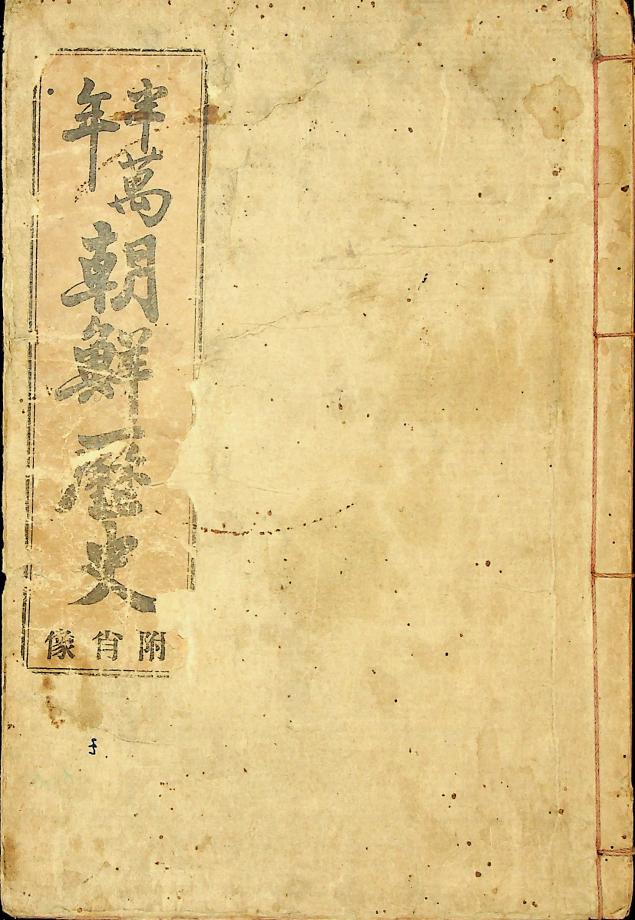 半萬年
朝鮮歷史
附肖像